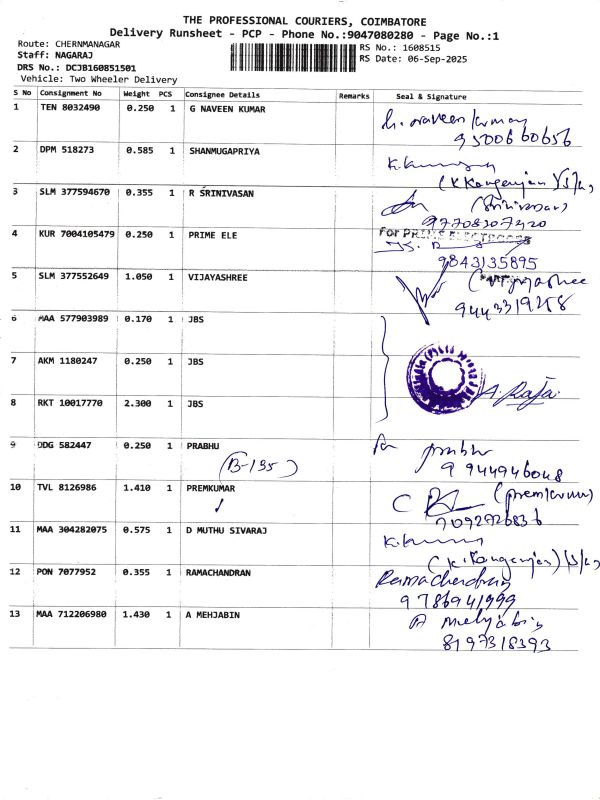 THE PROFESSIONAL COURIERS, COIMBATORE
Delivery Runsheet - PCP - Phone No.:9047080280 - Page No.:1
Route: CHERNMANAGAR
Staff: NAGARAJ
DRS No.: DCJB160851501
Vehicle: Two Wheeler Delivery
RS No.: 1608515
RS Date: 06-Sep-2025
S No Consignment No Weight PCS Consignee Details Remarks Seal & Signature
1 TEN 8032490 0.250 1 G NAVEEN KUMAR
9500660656
2 DPM 518273 0.585 1 SHANMUGAPRIYA
3 SLM 377594670 0.355 1 R SRINIVASAN
(Srinivasan)
4 KUR 7004105479 0.250 1 PRIME ELE
For PRIME
9843135895
5 SLM 377552649 1.050 1 VIJAYASHREE
6 MAA 577903989 0.170 1 JBS
7 AKM 1180247 0.250 1 JBS
A. Raja.
8 RKT 10017770 2.300 1 JBS
9 DDG 582447 0.250 1 PRABHU
(B-195)
for prabhu
9944946048
10 TVL 8126986 1.410 1 PREMKUMAR
(premkumar)
7092726836
11 MAA 304282075 0.575 1 D MUTHU SIVARAJ
12 PON 7077952 0.355 1 RAMACHANDRAN
Ramachandran
9786941999
13 MAA 712206980 1.430 1 A MEHJABIN
A Mehjabin
8197318393